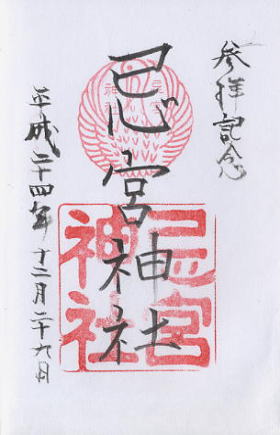 参拝記念
忌宮神社
忌宮
神社
平成二十四年 十二月二十九日